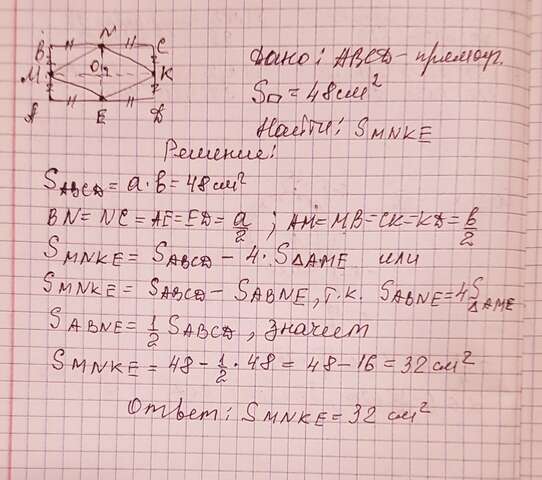 B N C
M O K
A E D
Дано: ABCD - прямоуг.
S▭ = 48 см²
Найти: S MNKE
Решение:
S ABCD = a · b = 48 см²
BN = NC = AE = ED = a/2 ; AM = MB = CK = KD = b/2
S MNKE = S ABCD - 4 · S △AME или
S MNKE = S ABCD - S ABNE, т.к. S ABNE = 4S △AME
S ABNE = 1/2 S ABCD, значит
S MNKE = 48 - 1/2 · 48 = 48 - 16 = 32 см²
Ответ: S MNKE = 32 см²